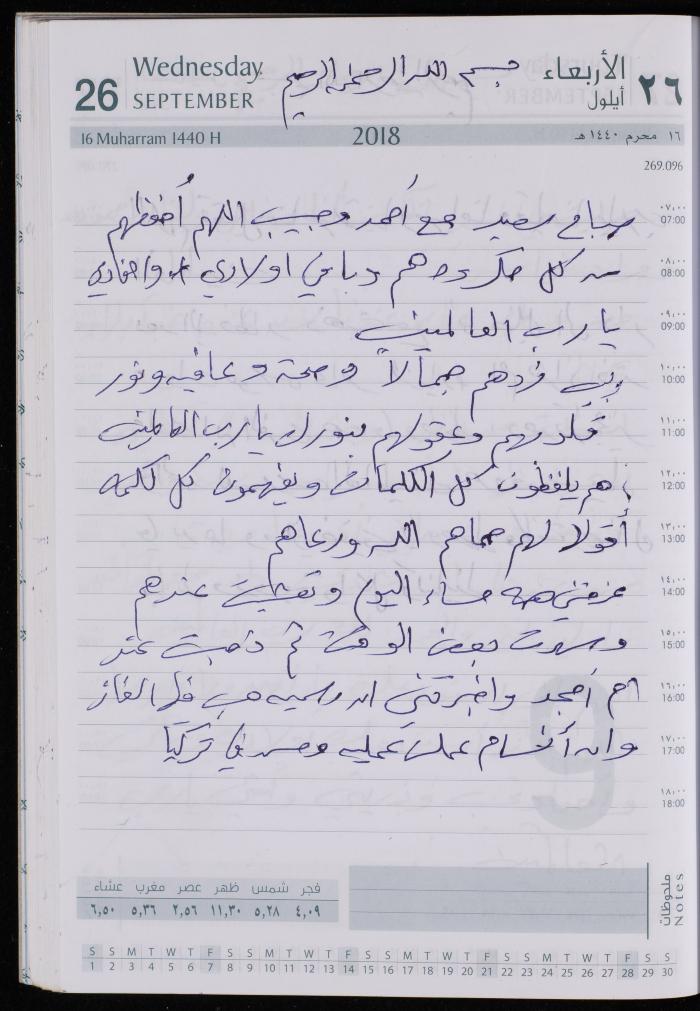 Wednesday
26 SEPTEMBER
بسم الله الرحمن الرحيم
الأربعاء
٢٦ أيلول
16 Muharram 1440 H 2018 ١٦ محرم ١٤٤٠ هـ
269.096
صباح سعيد مع أحمد وحبيب اللهم أحفظهم
من كل مكروه هم وباقي اولادي واحفادي
يارب العالمين
زدهم جمالاً وصحة وعافيه ونور
قلوبهم وعقولهم بنورك يارب العالمين
هم يلفظون كل الكلمات ويفهمون كل كلمه
أقولا لهم حماهم الله ورعاهم
عزمتني مساء اليوم وتعشيت عندهم
وسهرت بعض الوقت ثم ذهبت عند
ام أمجد واخبرتني ان
وان أقسام عملت عمليه في تركيا
٠٧,٠٠
07:00
٠٨,٠٠
08:00
٠٩,٠٠
09:00
١٠,٠٠
10:00
١١,٠٠
11:00
١٢,٠٠
12:00
١٣,٠٠
13:00
١٤,٠٠
14:00
١٥,٠٠
15:00
١٦,٠٠
16:00
١٧,٠٠
17:00
١٨,٠٠
18:00
9
فجر شمس ظهر عصر مغرب عشاء
٤,٠٩ ٥,٢٨ ١١,٣٠ ٢,٥٦ ٥,٣٦ ٦,٥٠
ملحوظات
Notes
S S M T W T F S S M T W T F S S M T W T F S S M T W T F S S
1 2 3 4 5 6 7 8 9 10 11 12 13 14 15 16 17 18 19 20 21 22 23 24 25 26 27 28 29 30